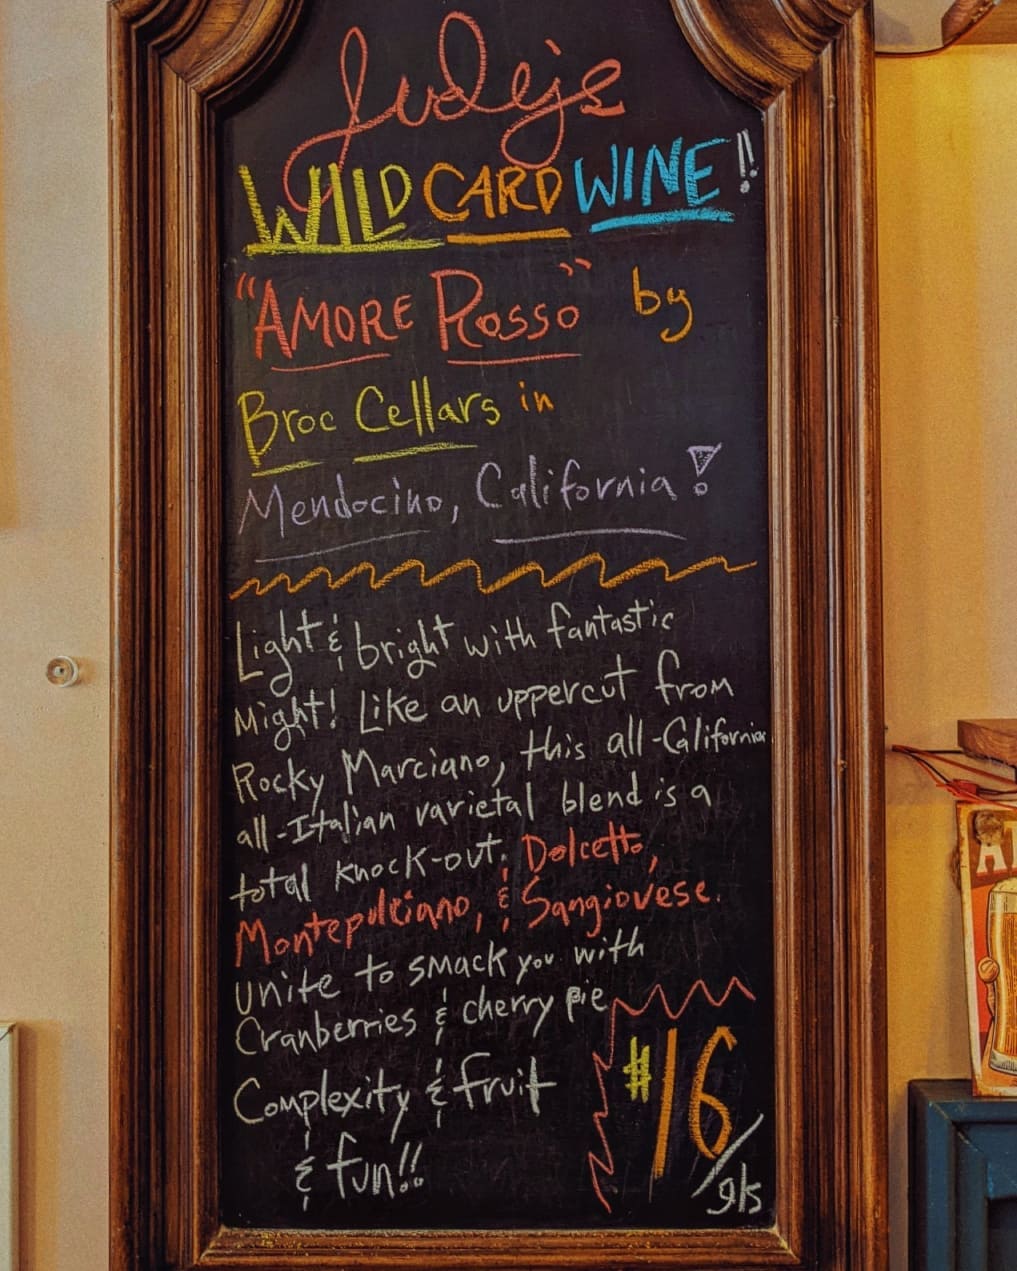 Judejs
WILD CARD WINE!!
"AMORE Rosso" by
Broc Cellars in
Mendocino, California!
Light & bright with fantastic
Might! Like an uppercut from
Rocky Marciano, this all-California
all-Italian varietal blend is a
total knock-out. Dolcetto,
Montepulciano, & Sangiovese.
unite to smack you with
Cranberries & cherry pie
Complexity & fruit
& fun!!
#16/gls